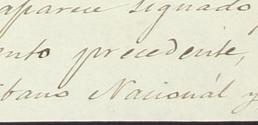 aparece signado
ento precedente,
ibano Nacionál y